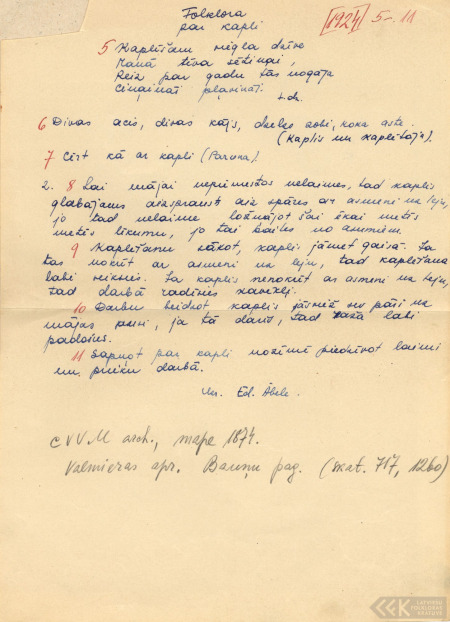 Folklora
par kapli
[1924] 5-11
5 Kaplīšam viegla dzīve
Manā tēva sētiņai,
Reiz par gadu tās nogāja
Ciņaināi pļaviņāi.
t.dz.
6 Divas acis, divas kājs, dzelzs zobi, koka aste.
(Kaplis un kaplētājs).
7 Cirt kā ar kapli (Paruna).
2. 8 Lai mājai nepiemestos nelaimes, tad kaplis
glabājams aizsprausts aiz spāres ar asmeni uz leju,
jo tad nelaime ložņājot šai ēkai metīs
metīs līkumu, jo tai bailes no asmiem.
9 Kaplēšanu sākot, kaplis jāmet gaisā. Ja
tas nokrīt ar asmeni uz leju, tad kaplēšana
labi veiksies. Ja kaplis nenokrīt ar asmeni uz leju,
tad darbā radīsies kavekļi.
10 Darbu beidzot kaplis jāsviež pār uz
mājas pusi, ja tā darīs, tad raža labi
padosies.
11 Sapņot par kapli nozīmē piedzīvot laimi
un prieku darbā.
Ed. Ābele.
CVVM arch., mape 1874.
Valmieras apr. Bauņu pag. (skat. 717, 1260)
LATVIEŠU
FOLKLORAS
KRĀTUVE